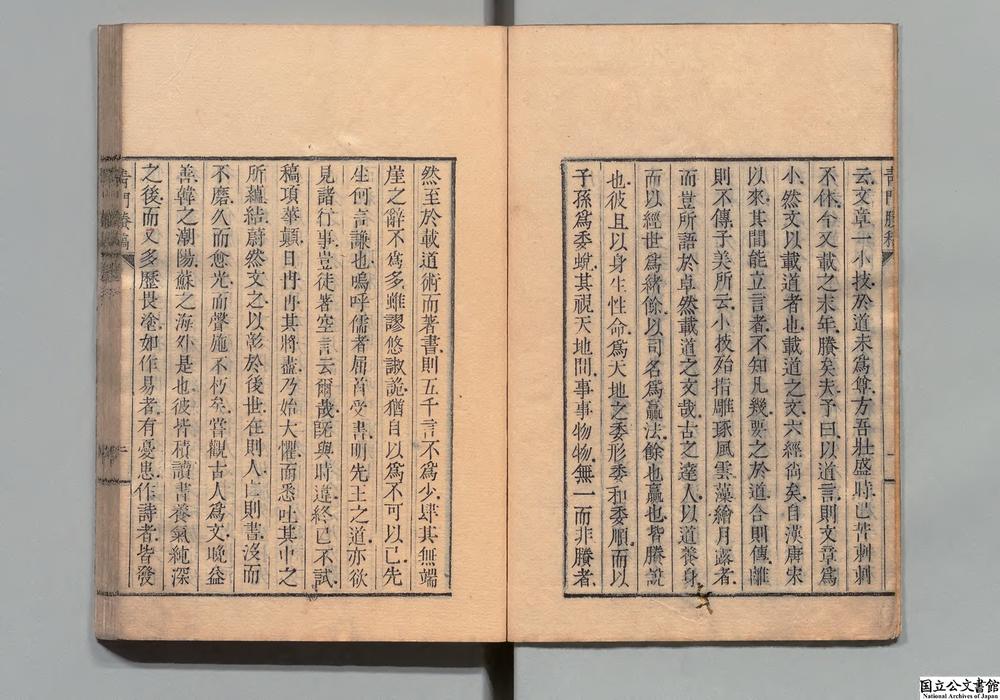 青門賸稿 一
云文章一小技於道未爲尊方吾壯盛時已訾刺刺
不休今又載之末年賸矣夫予曰以道言則文章爲
小然文以載道者也載道之文六經尚矣自漢唐宋
以來其間能立言者不知凡幾要之於道合則傳離
則不傳子美所云小技殆指雕琢風雲藻繪月露者
而豈所語於卓然載道之文哉古之達人以道養身
而以經世爲緒餘以司名爲贏法餘也贏也皆賸說
也彼且以身生性命爲天地之委形委和委順而以
子孫爲委蛻其視天地間事事物物無一而非賸者
然至於載道術而著書則五千言不爲少肆其無端
崖之辭不爲多雖謬悠諔詭猶自以爲不可以已先
生何言謙也嗚呼儒者屈首受書明先王之道亦欲
見諸行事豈徒著空言云爾哉旣與時違終己不試
槁項華顛日冉冉其將盡乃始大懼而悉吐其中之
所蘊結蔚然文之以彰於後世在則人亡則書沒而
不磨久而愈光而聲施不朽矣嘗觀古人爲文晚益
善韓之潮陽蘇之海外是也彼皆積讀書養氣純深
之後而又多歷畏塗如作易者有憂患作詩者皆發
青門賸稿 二
国立公文書館
National Archives of Japan